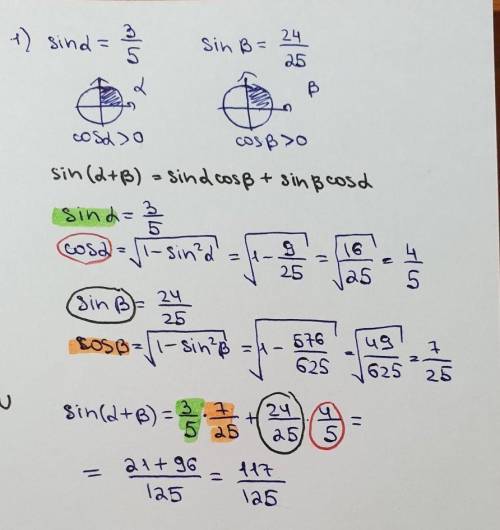 1) sin α = 3/5 sin β = 24/25
α β
cos α > 0 cos β > 0
sin(α+β) = sin α cos β + sin β cos α
sin α = 3/5
cos α = √(1 - sin²α) = √(1 - 9/25) = √(16/25) = 4/5
sin β = 24/25
cos β = √(1 - sin²β) = √(1 - 576/625) = √(49/625) = 7/25
sin(α+β) = 3/5 · 7/25 + 24/25 · 4/5 =
= (21 + 96)/125 = 117/125